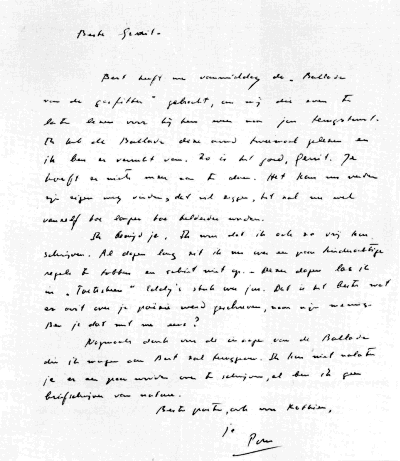 Beste Gerrit.
Bert heeft me vanmiddag de "Ballade
van de gasfitter" gebracht, om mij die even te
laten lezen voor hij hem weer aan jou terugstuurt.
Ik heb de Ballade deze avond tweemaal gelezen en
ik ben er verrukt van. Zo is het goed, Gerrit. Je
hoeft er niets meer aan te doen. Het kan nu verder
zijn eigen weg vinden, dat wil zeggen, het zal nu wel
vanzelf hoe langer hoe helderder worden.
Ik benijd je. Ik wou dat ik ook zo vrij kon
schrijven. Al dagen lang zit ik nu weer een paar
regels te tobben en schiet niet op. Dezer dagen las ik
in "Tortschen" stuk over jou. Dat is het beste wat
er ooit over je poëzie werd geschreven, naar mijn mening.
Ben je dat met me eens?
Nogmaals dank voor de inzage van de Ballade
die ik morgen aan Bert zal teruggeven. Ik kon niet nalaten
je er een paar woorden over te schrijven, al ben ik geen
briefschrijver van nature.
Beste groeten, ook van
je